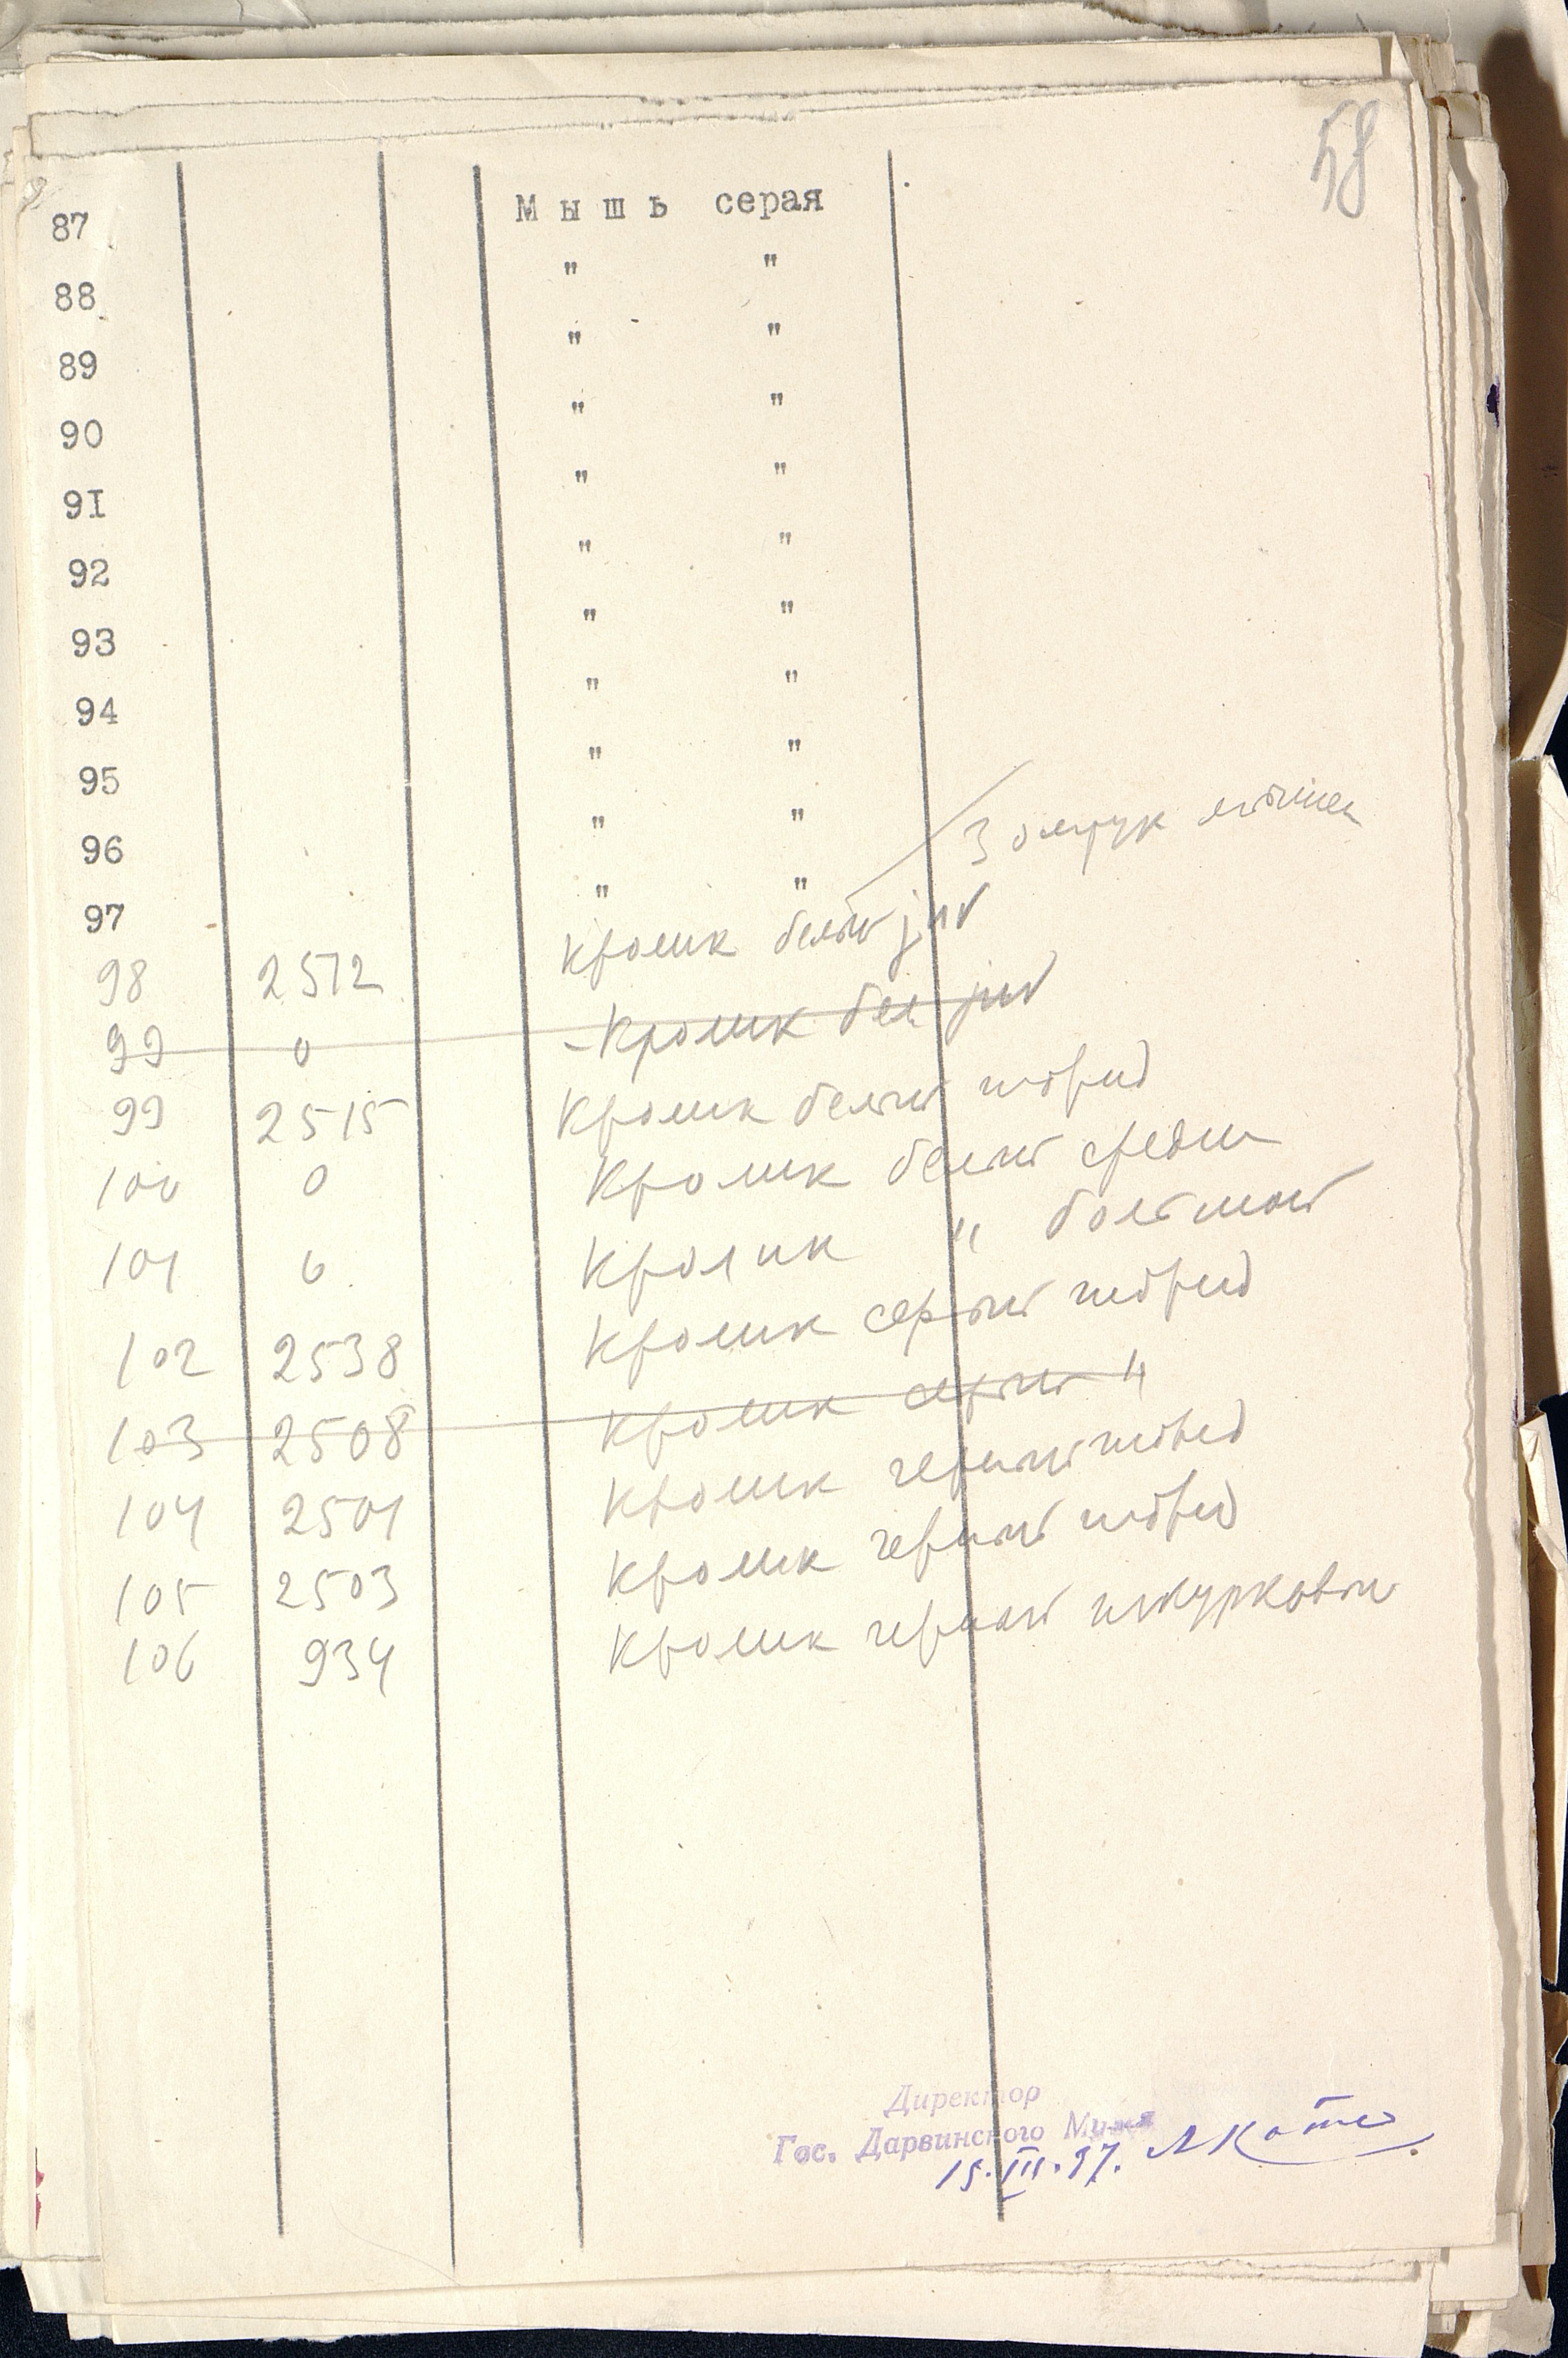 58
87 Мышь серая
88 " "
89 " "
90 " "
91 " "
92 " "
93 " "
94 " "
95 " "
96 " "
97 " "
3 мышей
98 2572 Кролик белый juv
99 0 Кролик бел juv
99 2515 Кролик белый гибрид
100 0 Кролик белый средн
101 0 Кролик " большой
102 2538 Кролик серый гибрид
103 2508 Кролик серый "
104 2501 Кролик черный гибрид
105 2503 Кролик черный гибрид
106 934 Кролик черный шкурковый
Директор
Гос. Дарвинского Музея
15.III.37. АКотс